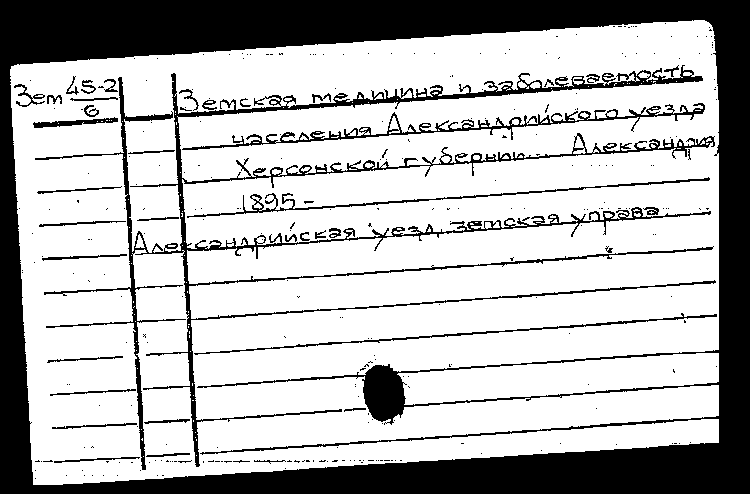 Зем 45-2/6
Земская медицина и заболеваемость
населения Александрийского уезда
Херсонской губернии... Александрия,
1895 -
Александрийская уезд. земская управа.